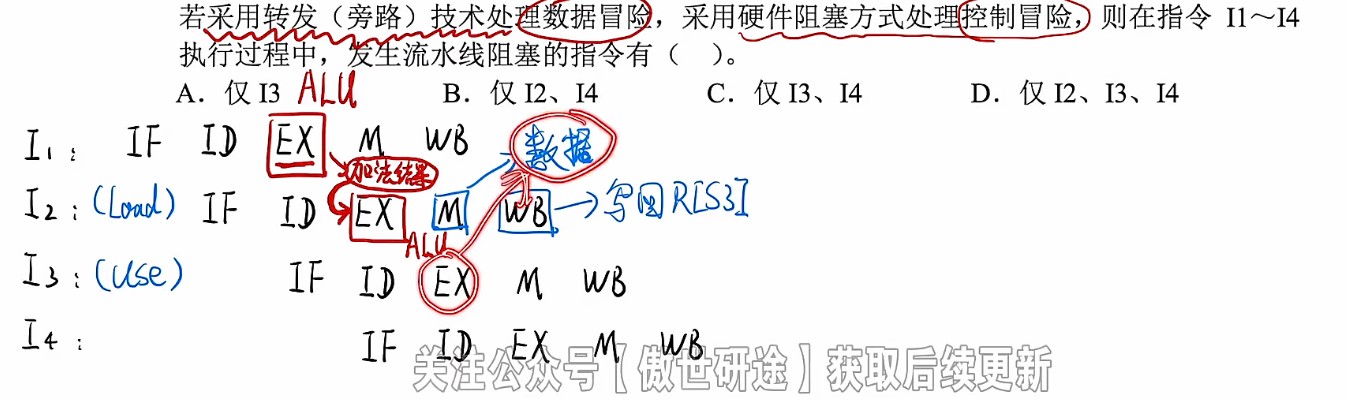 若采用转发（旁路）技术处理数据冒险，采用硬件阻塞方式处理控制冒险，则在指令 I1～I4
执行过程中，发生流水线阻塞的指令有（ ）。
A．仅 I3 ALU B．仅 I2、I4 C．仅 I3、I4 D．仅 I2、I3、I4
I1： IF ID EX M WB 数据
加法结果
I2：(Load) IF ID EX M WB →写回R[S3]
ALU
I3：(Use) IF ID EX M WB
I4： IF ID EX M WB
关注公众号【傲世研途】获取后续更新